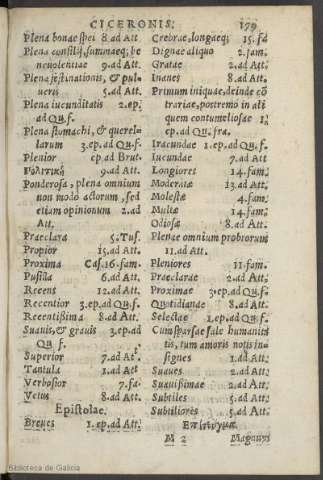 CICERONIS. 179
Plena bonae spei 8.ad Att.
Plena consilij, summaeq; be
neuolentiae 9.ad Att.
Plena festinationis, & pul-
ueris 5.ad Att.
Plena iucunditatis 2.ep.
ad Qu.f.
Plena stomachi, & querel-
larum 3.ep.ad Qu.f.
Plenior ep ad Brut.
9.ad Att.
Ponderosa, plena omnium
non modo actorum, sed
etiam opinionum 2.ad
Att.
Praeclara 5.Tus.
Propior 15.ad Att.
Proxima Cas.16.fam.
Pusilla 6.ad Att.
Recens 12.ad Att.
Recentior 3.ep.ad Qu.f.
Recentissima 8.ad Att.
Suauis, & grauis 3.ep.ad
Qu f.
Superior 7.ad At
Tantula 1.ad Act
Verbosior 7.fa.
Vetus 8.ad Att.
Epistolae.
Breues 1.ep.ad Att.
Crebrae, longaeq; 15.fa
Dignae aliquo 2.fam.
Gratae 2.ad Att.
Inanes 8.ad Att.
Primum iniquae, deinde cō
trariae, postremo in ali
quem contumeliosae 1.
ep.ad Qu.fra.
Iracundae 1.ep.ad Qu.f.
Iucundae 7.ad Att
Longiores 14.fam.
Moderatae 13.ad Att.
Molestae 4.fam.
Multae 14.fam.
Odiosae 8.ad Att.
Plenae omnium probrorum
11.ad Att.
Pleniores 11.fam.
Praeclarae 2.ad Att.
Proximae 3.ep.ad Qu.f.
Quotidianae 8.ad Att.
Selectae 1.ep.ad Qu.f.
Cum sparsae sale humanita
tis, tum amoris notis in-
signes 1.ad Att.
Suaues 2.ad Att.
Suauissimae 2.ad Att.
Subtiles 5.ad Att.
Subtiliores 5.ad Att.
M 2 Magnum
Biblioteca de Galicia